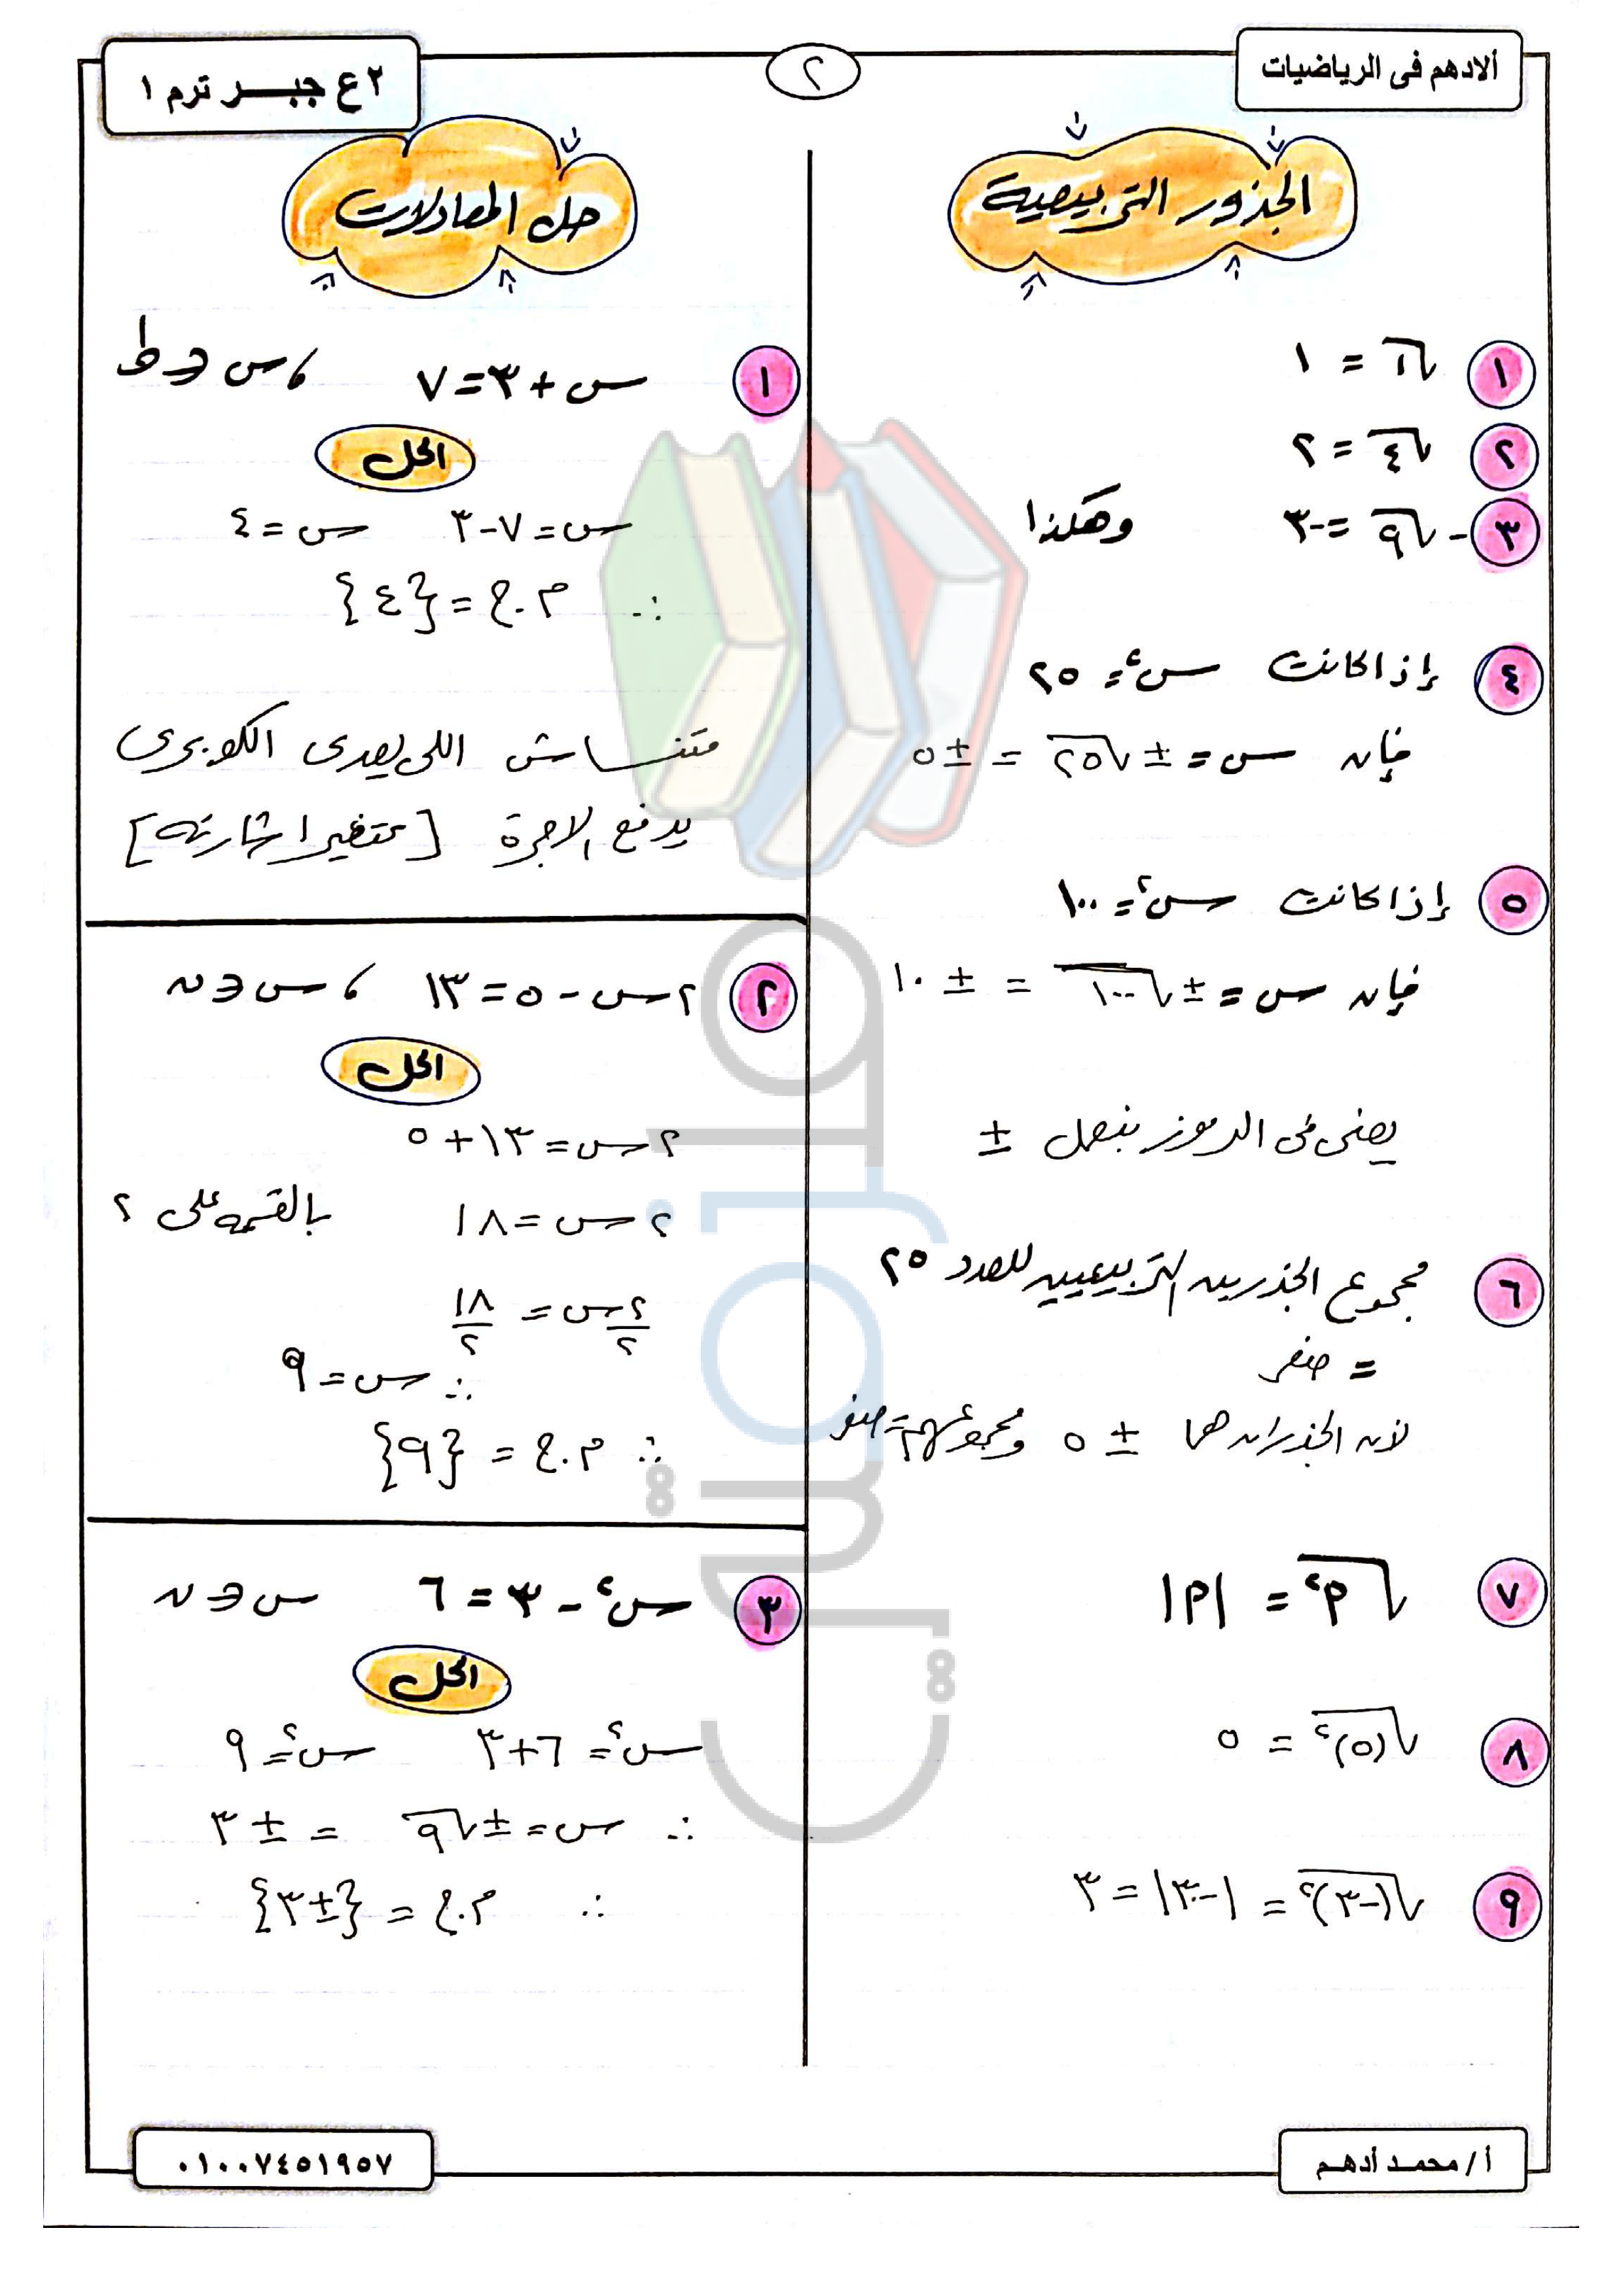 ألادهم فى الرياضيات
٢
٢ع جبـــر ترم ١
الجذور التربيعية
١ √١ = ١
٢ √٤ = ٢
٣ -√٩ = -٣ وهكذا
٤ إذا كانت س² = ٢٥
فإن س = ± √٢٥ = ± ٥
٥ إذا كانت س² = ١٠٠
فإن س = ± √١٠٠ = ± ١٠
يعنى فى الرموز بنعمل ±
٦ مجموع الجذرين التربيعيين للعدد ٢٥
= صفر
لأن الجذران هما ± ٥ ومجموعهم = صفر
٧ √م² = |م|
٨ √(٥)² = ٥
٩ √(-٣)² = |-٣| = ٣
حل المعادلات
١ س + ٣ = ٧ ، س ∈ ط
الحل
س = ٧ - ٣ س = ٤
∴ م.ح = {٤}
متنساش اللى يعدى الكوبرى
يدفع الاجرة [تتغير اشارته]
٢ ٢س - ٥ = ١٣ ، س ∈ ن
الحل
٢س = ١٣ + ٥
٢س = ١٨ بالقسمه على ٢
٢س/٢ = ١٨/٢
∴ س = ٩
∴ م.ح = {٩}
٣ س² - ٣ = ٦ س ∈ ن
الحل
س² = ٦ + ٣ س² = ٩
∴ س = ± √٩ = ± ٣
∴ م.ح = {± ٣}
أ / محمـد أدهـم
٠١٠٠٧٤٥١٩٥٧